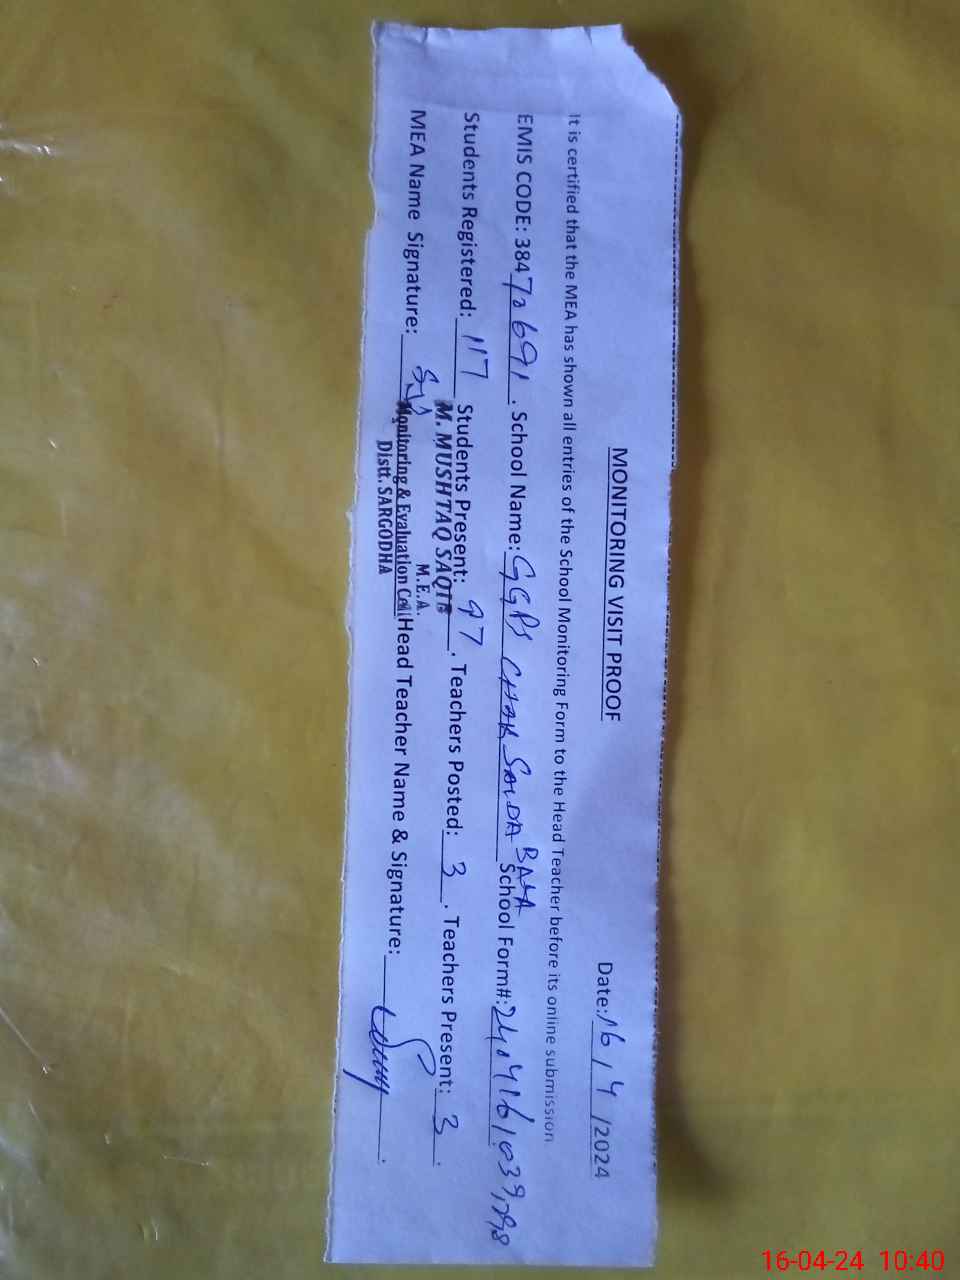 MONITORING VISIT PROOF
Date: 16/4/2024
It is certified that the MEA has shown all entries of the School Monitoring Form to the Head Teacher before its online submission
EMIS CODE: 38470691. School Name: GGPS CHAK SAIDA BALA School Form#:
Students Registered: 117 Students Present: 97. Teachers Posted: 3. Teachers Present: 3.
M. MUSHTAQ SAQIB
M.E.A.
MEA Name Signature: Monitoring & Evaluation Cell Head Teacher Name & Signature:
Distt. SARGODHA
16-04-24 10:40